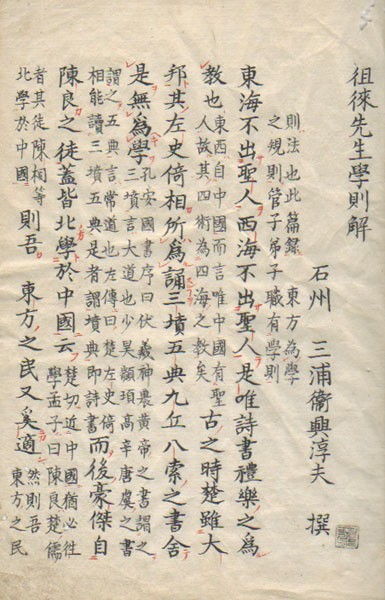 徂徠先生學則解
石州 三浦衞興淳夫 撰
則法也此篇録 東方為學
之規則管子弟子職有學則
東海不出聖人西海不出聖人是唯詩書禮樂之為
教也
東西自中國而言唯中國有聖
人故其四術為四海之教矣
古之時楚雖大
邦其左史倚相所為誦三墳五典九丘八索之書舍
是無為學
孔安國書序曰伏羲神農黄帝之書謂之
三墳言大道也少昊顓頊高辛唐虞之書
謂之五典言常道也左傳曰楚左史倚
相能讀三墳五典是者謂墳典即詩書
而後豪傑自
陳良之徒蓋皆北學於中國云
楚切近中國猶必徃
學孟子曰陳良楚儒
者其徒陳相等
北學於中國
則吾 東方之民又奚適
然則吾
東方之民